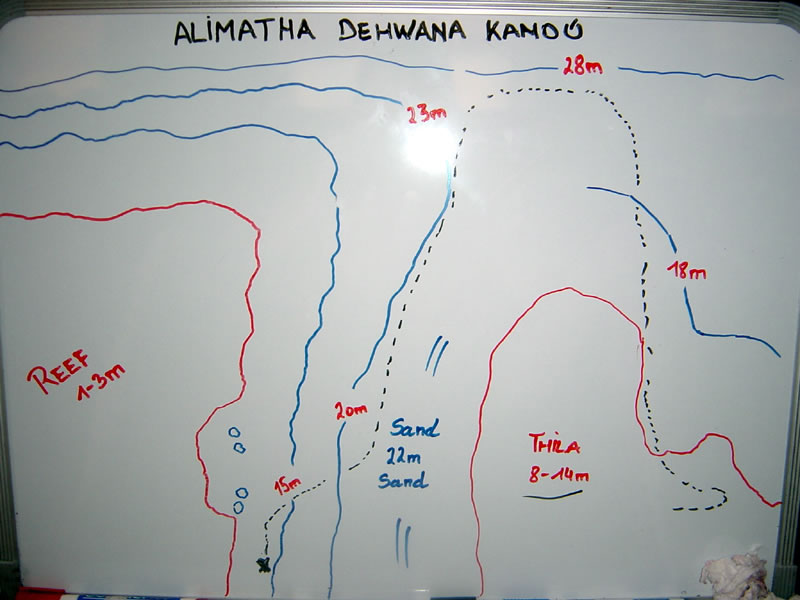 ALIMATHA DEHWANA KANDÚ
28m
23m
18m
REEF
1-3m
20m
Sand
22m
Sand
THILA
8-14m
15m